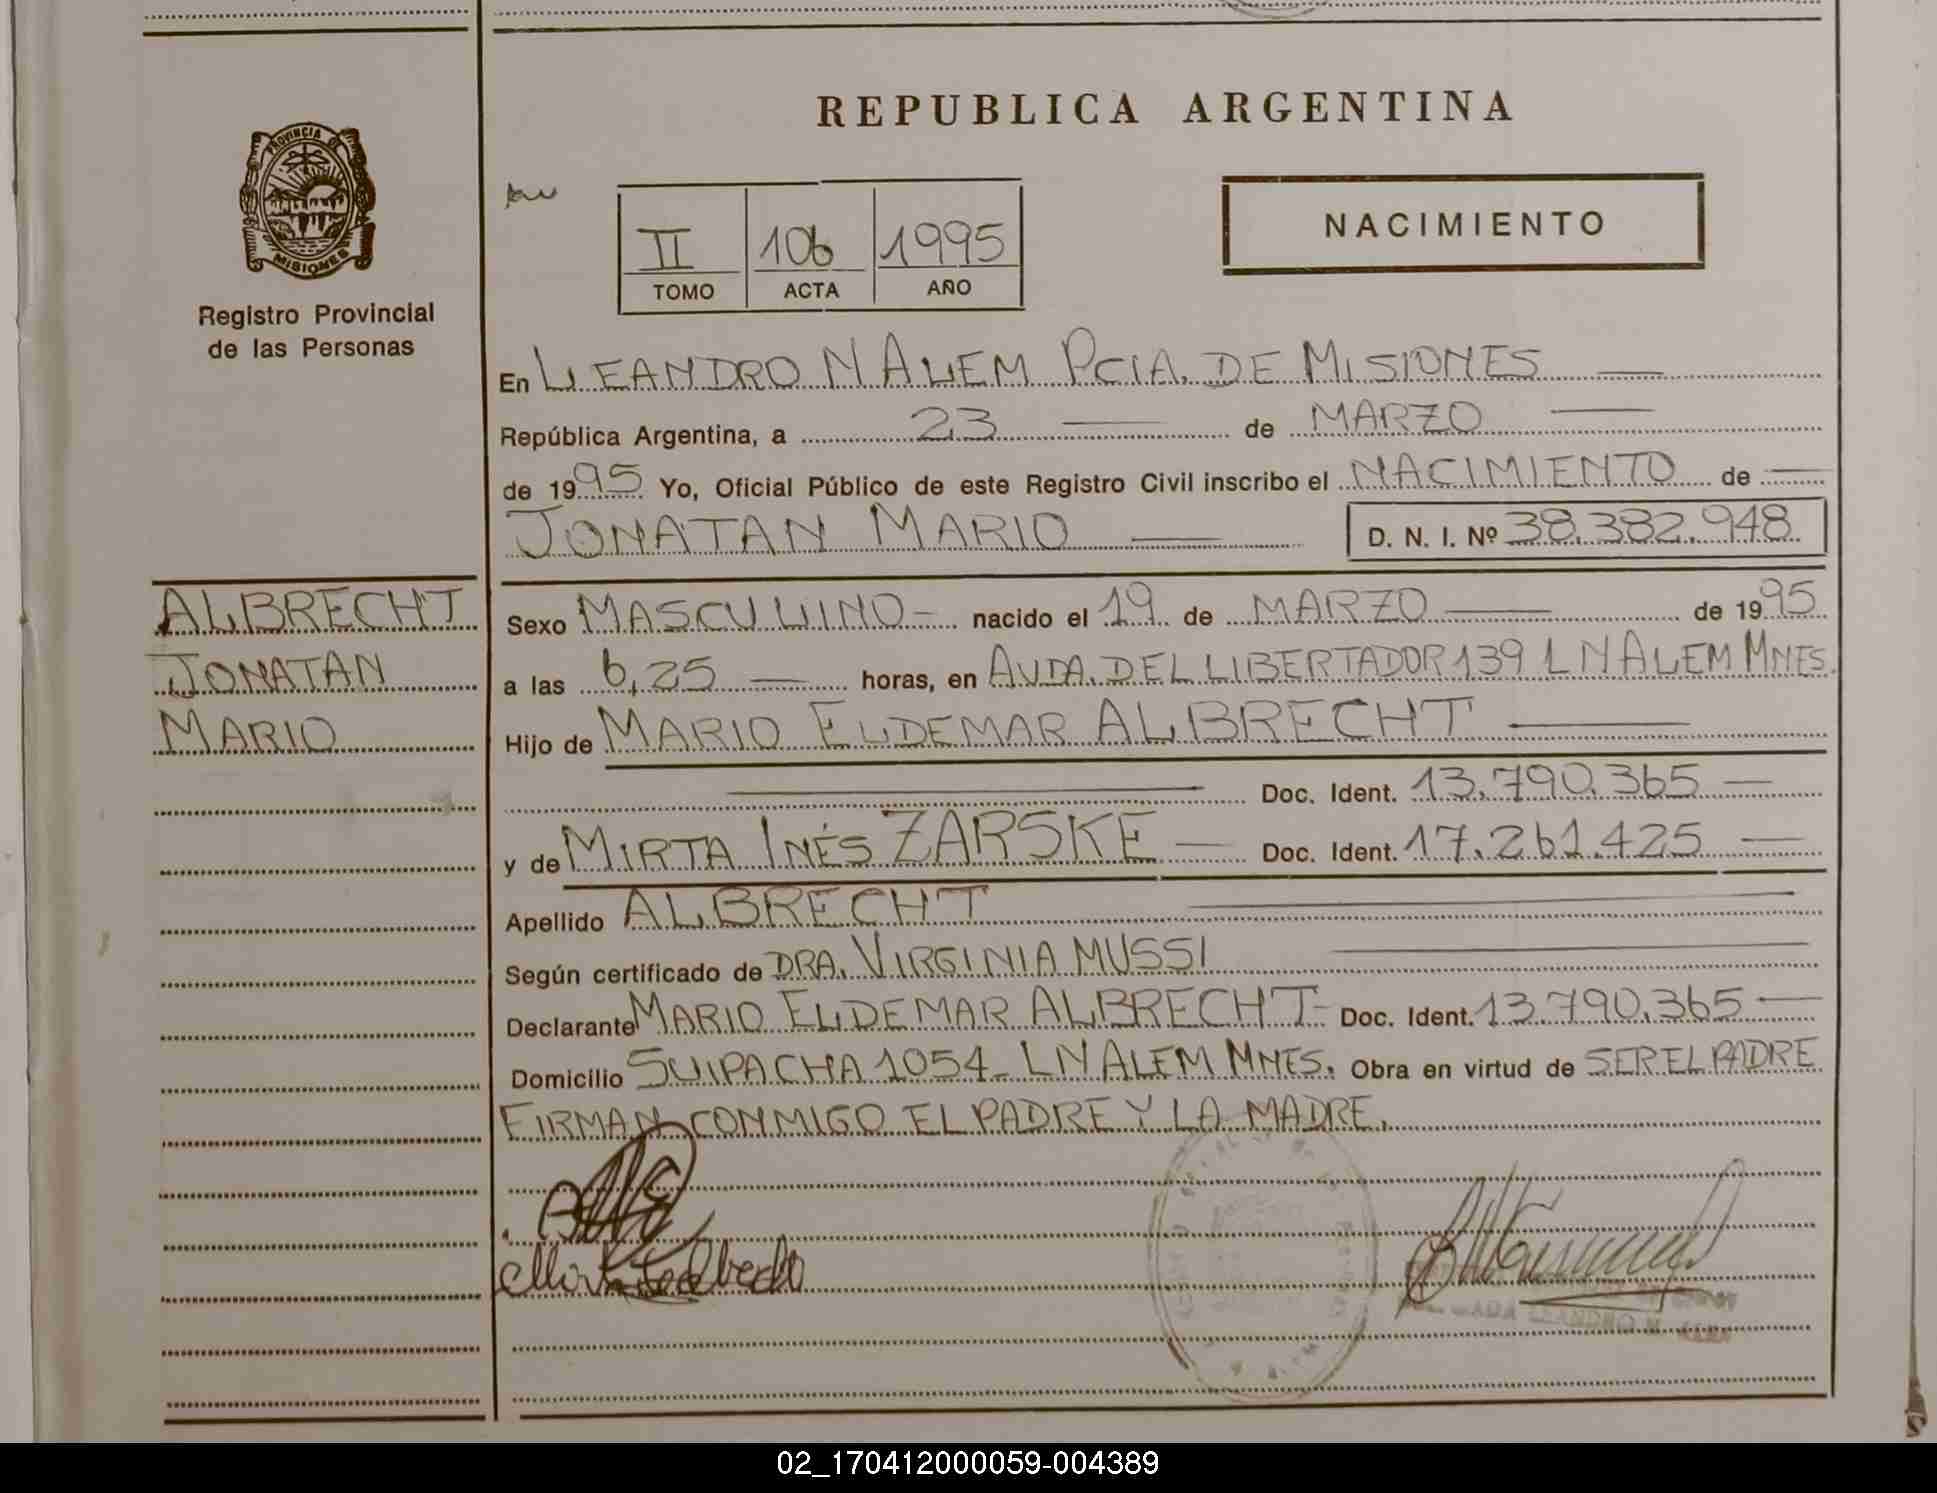 PROVINCIA DE
MISIONES
Registro Provincial
de las Personas
REPUBLICA ARGENTINA
II 106 1995
TOMO ACTA AÑO
NACIMIENTO
En LEANDRO N ALEM PCIA. DE MISIONES
República Argentina, a 23 de MARZO
de 1995 Yo, Oficial Público de este Registro Civil inscribo el NACIMIENTO de
JONATAN MARIO D. N. I. Nº 38.382.948
ALBRECHT
JONATAN
MARIO
Sexo MASCULINO - nacido el 19 de MARZO de 1995
a las 6,25 horas, en AVDA. DEL LIBERTADOR 139 L N ALEM MNES.
Hijo de MARIO ELDEMAR ALBRECHT
Doc. Ident. 13.790.365
y de MIRTA INÉS ZARSKE Doc. Ident. 17.261.425
Apellido ALBRECHT
Según certificado de DRA. VIRGINIA MUSSI
Declarante MARIO ELDEMAR ALBRECHT - Doc. Ident. 13.790.365
Domicilio SUIPACHA 1054 - L N ALEM MNES. Obra en virtud de SER EL PADRE
FIRMAN CONMIGO EL PADRE Y LA MADRE.
LEANDRO N. ALEM
02_170412000059-004389